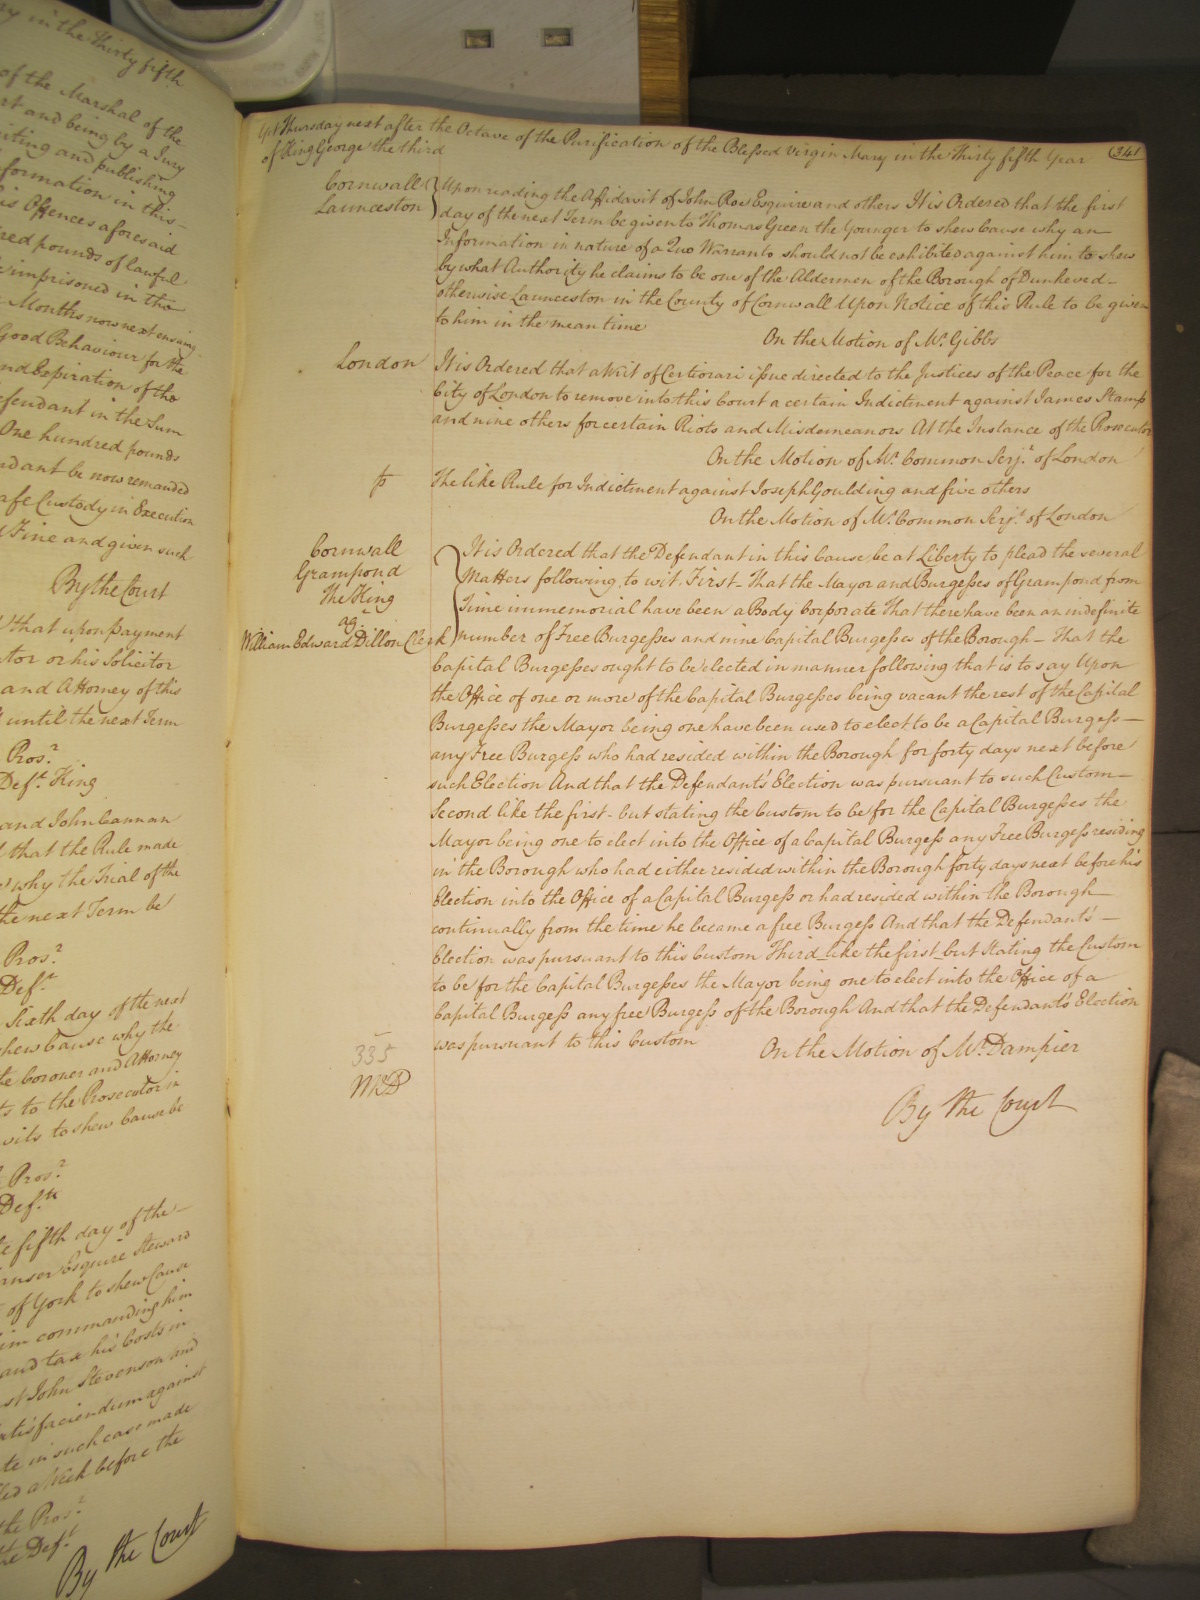 ry in the Thirty fifth
of the Marshal of the
rt and being by a Jury
riting and publishing
formation in this
is Offences aforesaid
red pounds of lawful
imprisoned in the
Months now next ensuing
Good Behaviour for the
nd Expiration of the
efendant in the Sum
One hundred pounds
ndant be now remanded
afe Custody in Execution
d Fine and given such
By the Court
that upon payment
tor or his Solicitor
and Attorney of this
until the next Term
Pros.r
Def.t King
and John Cannan
that the Rule made
why the Trial of the
the next Term be
Pros.r
Def.t
Sixth day of the next
shew Cause why the
the Coroner and Attorney
ts to the Prosecutor in
vits to shew Cause be
Pros.r
Def.ts
fifth day of the
anser Esquire Steward
of York to shew Cause
im commanding him
and tax his Costs in
st John Stevenson and
atisfaciendum against
te in such case made
ed a Week before the
the Pros.r
the Def.t
By the Court
Yet Thursday next after the Octave of the Purification of the Blessed Virgin Mary in the Thirty fifth Year 341
of King George the third
Cornwall
Launceston
Upon reading the Affidavit of John Roe Esquire and others It is Ordered that the first
day of the next Term be given to Thomas Green the Younger to shew Cause why an
Information in nature of a Quo Warranto should not be exhibited against him to shew
by what Authority he claims to be one of the Aldermen of the Borough of Dunheved
otherwise Launceston in the County of Cornwall Upon Notice of this Rule to be given
to him in the mean time
On the Motion of Mr. Gibbs
London
It is Ordered that a Writ of Certiorari issue directed to the Justices of the Peace for the
City of London to remove into this Court a certain Indictment against James Stamp
and nine others for certain Riots and Misdemeanors At the Instance of the Prosecutor
On the Motion of Mr. Common Serj.t of London
The like Rule for Indictment against Joseph Goulding and five others
On the Motion of Mr. Common Serj.t of London
Cornwall
Grampond
The King
ag.
William Edward Dillon Clerk
It is Ordered that the Defendant in this Cause be at Liberty to plead the several
Matters following, to wit. First That the Mayor and Burgesses of Grampond from
Time immemorial have been a Body Corporate That there have been an indefinite
number of Free Burgesses and nine Capital Burgesses of the Borough - That the
Capital Burgesses ought to be elected in manner following that is to say Upon
the Office of one or more of the Capital Burgesses being vacant the rest of the Capital
Burgesses the Mayor being one have been used to elect to be a Capital Burgess
any Free Burgess who had resided within the Borough for forty days next before
such Election And that the Defendant's Election was pursuant to such Custom
Second like the first - but stating the Custom to be for the Capital Burgesses the
Mayor being one to elect into the Office of a Capital Burgess any Free Burgess residing
in the Borough who had either resided within the Borough forty days next before his
Election into the Office of a Capital Burgess or had resided within the Borough
continually from the time he became a free Burgess And that the Defendant's
Election was pursuant to this Custom Third like the first but stating the Custom
to be for the Capital Burgesses the Mayor being one to elect into the Office of a
Capital Burgess any free Burgess of the Borough And that the Defendant's Election
was pursuant to this Custom
On the Motion of Mr. Dampier
335
By the Court